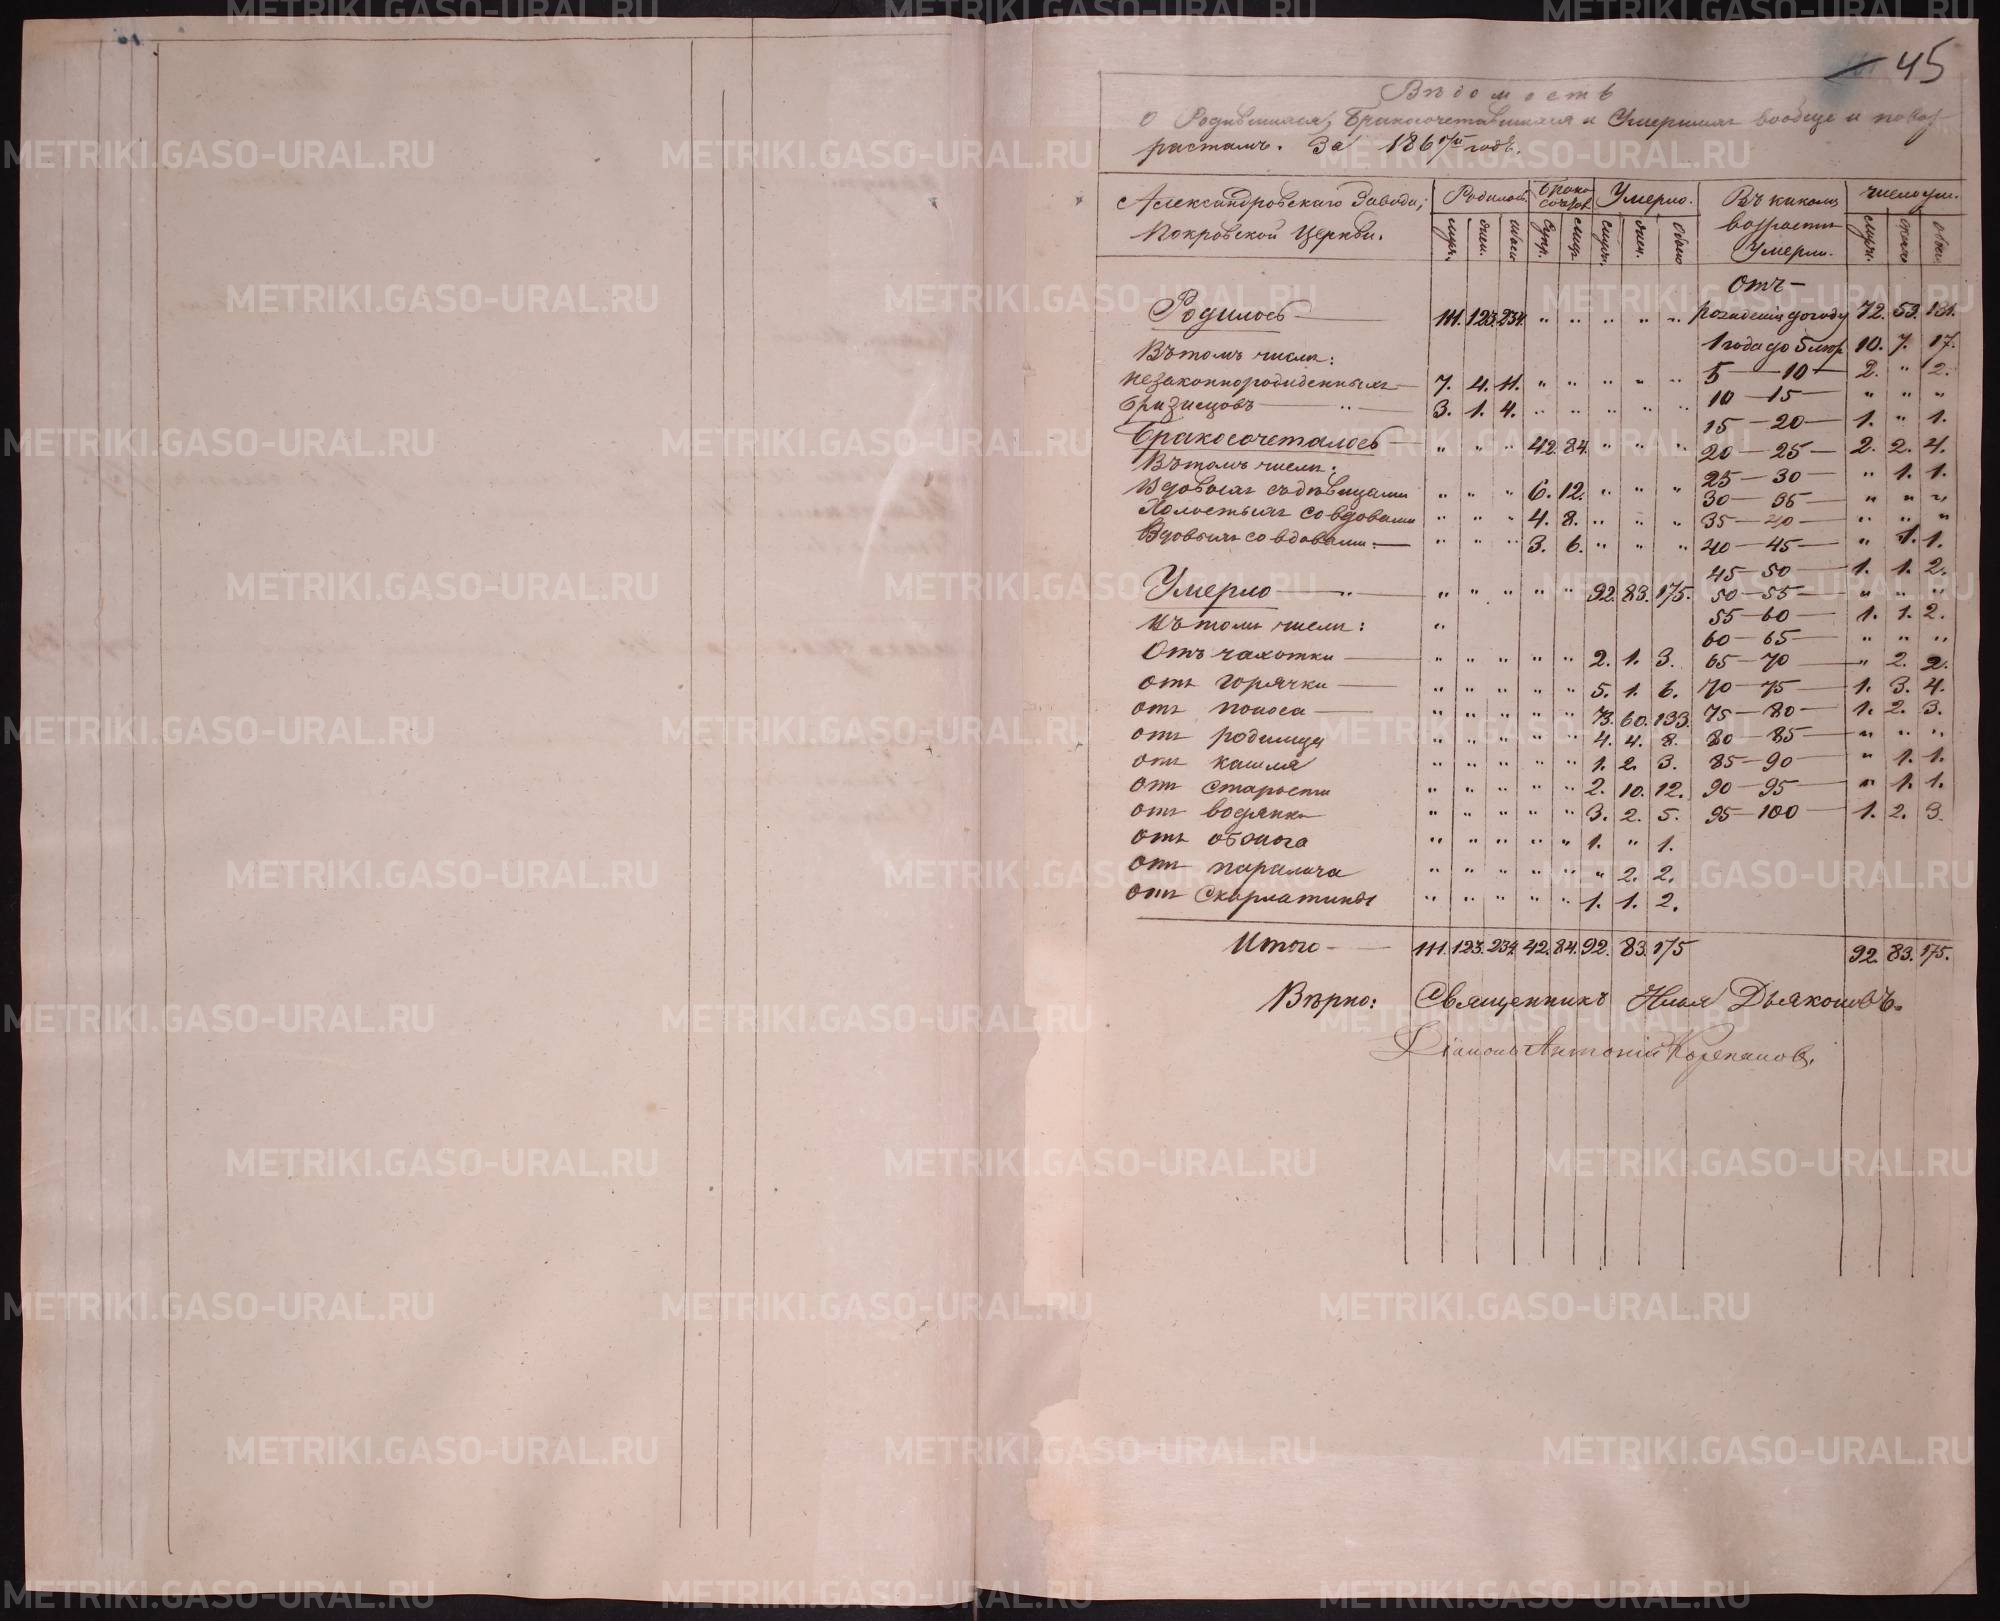 45
Вѣдомость
о Родившихся, Бракосочетавшихся и Умершихъ вообще и повоз-
растамъ. За 186 годъ.
Александровскаго Завода, Родилось. Брако сочетов. Умерло. Въ какомъ число ум.
Покровской Церкви. муж. жен. обоего супр. лицъ муж. жен. обоего возрасте Умерли. муж. жен. обоего
Отъ —
Родилось — 111. 123. 234. „ „ „ „ „ рожденія догоду 72. 59. 131.
Въ томъ числѣ: 1 года до 5 лѣтъ 10. 7. 17.
незаконнорожденныхъ — 7. 4. 11. „ „ „ „ „ 5 — 10 — 2. „ 2.
близнецовъ — „ — 3. 1. 4. „ „ „ „ „ 10 — 15 — „ „ „
15 — 20 — 1. „ 1.
Бракосочеталось — „ „ „ 42. 84. „ „ „ 20 — 25 — 2. 2. 4.
Въ томъ числѣ: 25 — 30 — „ 1. 1.
Вдовыхъ съ дѣвицами „ „ „ 6. 12. „ „ „ 30 — 35 — „ „ „
Холостыхъ со вдовами „ „ „ 4. 8. „ „ „ 35 — 40 — „ „ „
Вдовыхъ со вдовами. — „ „ „ 3. 6. „ „ „ 40 — 45 — „ 1. 1.
45 — 50 — 1. 1. 2.
Умерло — „ — „ „ „ „ „ 92. 83. 175. 50 — 55 — „ „ „
Въ томъ числѣ: „ 55 — 60 — 1. 1. 2.
60 — 65 — „ „ „
Отъ чахотки — „ „ „ „ „ 2. 1. 3. 65 — 70 — „ 2. 2.
отъ горячки — „ „ „ „ „ 5. 1. 6. 70 — 75 — 1. 3. 4.
отъ поноса — „ „ „ „ „ 73. 60. 133. 75 — 80 — 1. 2. 3.
отъ родимца „ „ „ „ „ 4. 4. 8. 80 — 85 — „ „ „
отъ кашля „ „ „ „ „ 1. 2. 3. 85 — 90 — „ 1. 1.
отъ старости „ „ „ „ „ 2. 10. 12. 90 — 95 — „ 1. 1.
отъ водянки „ „ „ „ „ 3. 2. 5. 95 — 100 — 1. 2. 3.
отъ обжога „ „ „ „ „ 1. „ 1.
отъ паралича „ „ „ „ „ „ 2. 2.
отъ Скарлатины „ „ „ „ „ 1. 1. 2.
Итого — 111. 123. 234. 42. 84. 92. 83. 175 92. 83. 175.
Вѣрно: Священникъ Илья Дьяконовъ.
Діаконъ Антоній Корепановъ.
METRIKI.GASO-URAL.RU